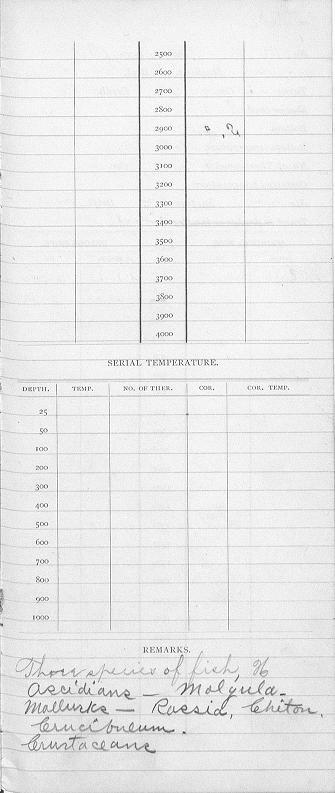 2500
2600
2700
2800
2900
3000
3100
3200
3300
3400
3500
3600
3700
3800
3900
4000
SERIAL TEMPERATURE.
DEPTH. TEMP. NO. OF THER. COR. COR. TEMP.
25
50
100
200
300
400
500
600
700
800
900
1000
REMARKS.
Three species of fish,
Ascidians — Molgula.
Mollusks — Rossia, Chiton.
Crucibulum.
Crustaceans